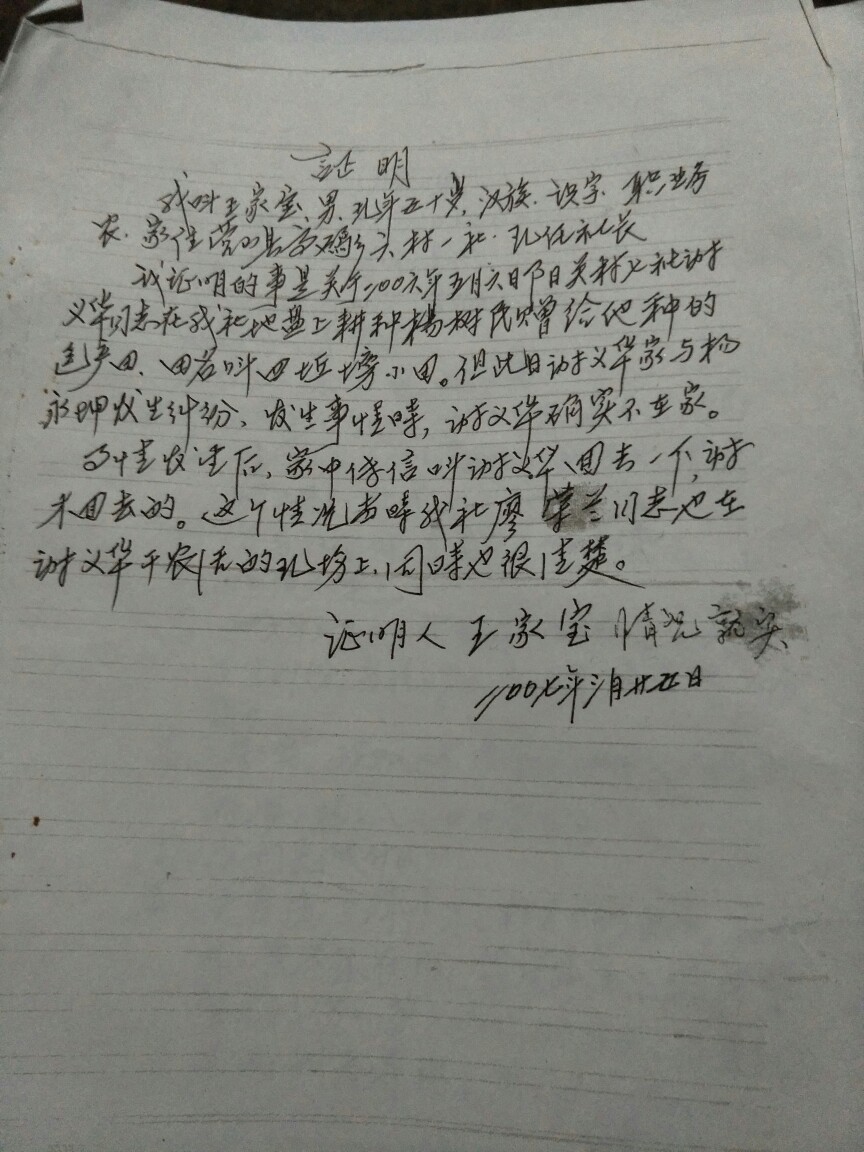 证明
我叫王家宝、男、现年五十岁，汉族．识字．职业务
农．家住营山县 乡 村一社．现任社长
我证明的事是关于二00六年五月六日 日 村 社谢
义华同志在我社地盘上耕种杨树民赠给他种的
包产田、田名叫四 塝小田。但此日谢义华家与杨
永 发生纠纷、发生事情时，谢义华确实不在家。
事情发生后，家中传信叫谢义华回去一下，谢
未回去的。这个情况当时我社廖荣兰同志也在
谢义华干农活的现场上、同时也很清楚。
证明人 王家宝 情况 实
二00七年三月廿五日